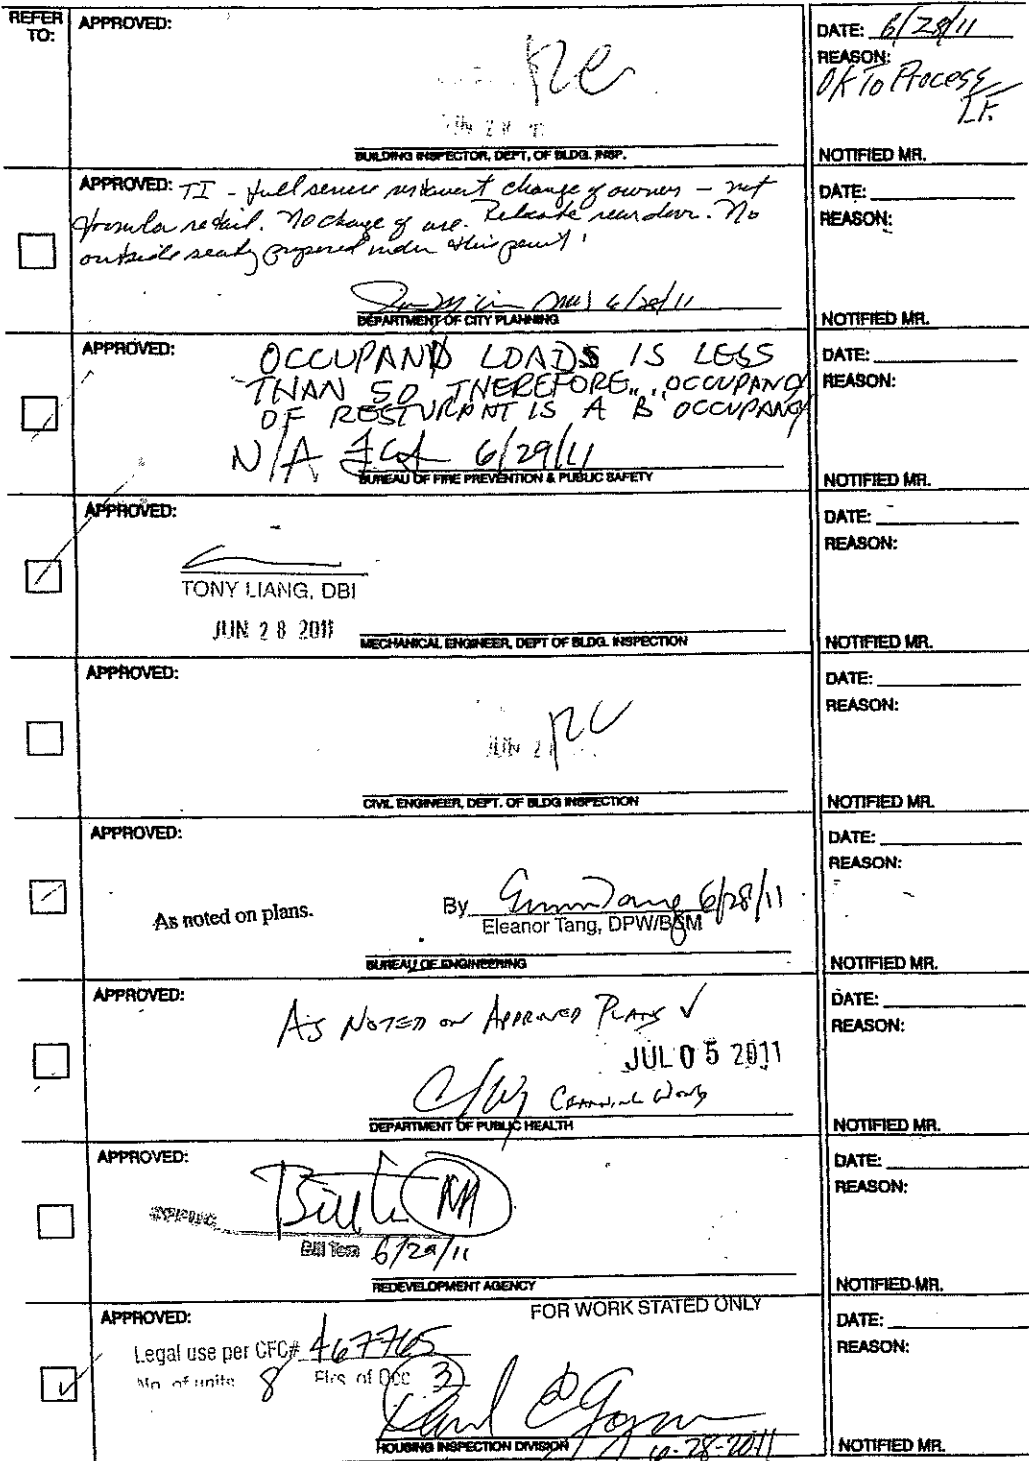 REFER TO:
APPROVED:
DATE: 6/28/11
REASON:
OK To Process
L.F.
BUILDING INSPECTOR, DEPT. OF BLDG. INSP.
NOTIFIED MR.
APPROVED: TI - full service restaurant change of owner - not
formula retail. No change of use. Relocate rear door. No
outside seating proposed under this permit.
6/28/11
DEPARTMENT OF CITY PLANNING
DATE:
REASON:
NOTIFIED MR.
APPROVED:
OCCUPAND LOADS IS LESS
THAN 50 THEREFORE, OCCUPANCY
OF RESTURANT IS A B OCCUPANCY
N/A 6/29/11
BUREAU OF FIRE PREVENTION & PUBLIC SAFETY
DATE:
REASON:
NOTIFIED MR.
APPROVED:
TONY LIANG, DBI
JUN 28 2011
MECHANICAL ENGINEER, DEPT OF BLDG. INSPECTION
DATE:
REASON:
NOTIFIED MR.
APPROVED:
JUN 2
CIVIL ENGINEER, DEPT. OF BLDG INSPECTION
DATE:
REASON:
NOTIFIED MR.
APPROVED:
As noted on plans.
By 6/28/11
Eleanor Tang, DPW/BSM
BUREAU OF ENGINEERING
DATE:
REASON:
NOTIFIED MR.
APPROVED:
AS NOTED ON APPROVED PLANS ✓
JUL 05 2011
DEPARTMENT OF PUBLIC HEALTH
DATE:
REASON:
NOTIFIED MR.
APPROVED:
NA
6/29/11
REDEVELOPMENT AGENCY
DATE:
REASON:
NOTIFIED MR.
APPROVED:
FOR WORK STATED ONLY
Legal use per CFC# 467765
No. of units 8 Flrs. of Occ 3
6-28-2011
HOUSING INSPECTION DIVISION
DATE:
REASON:
NOTIFIED MR.